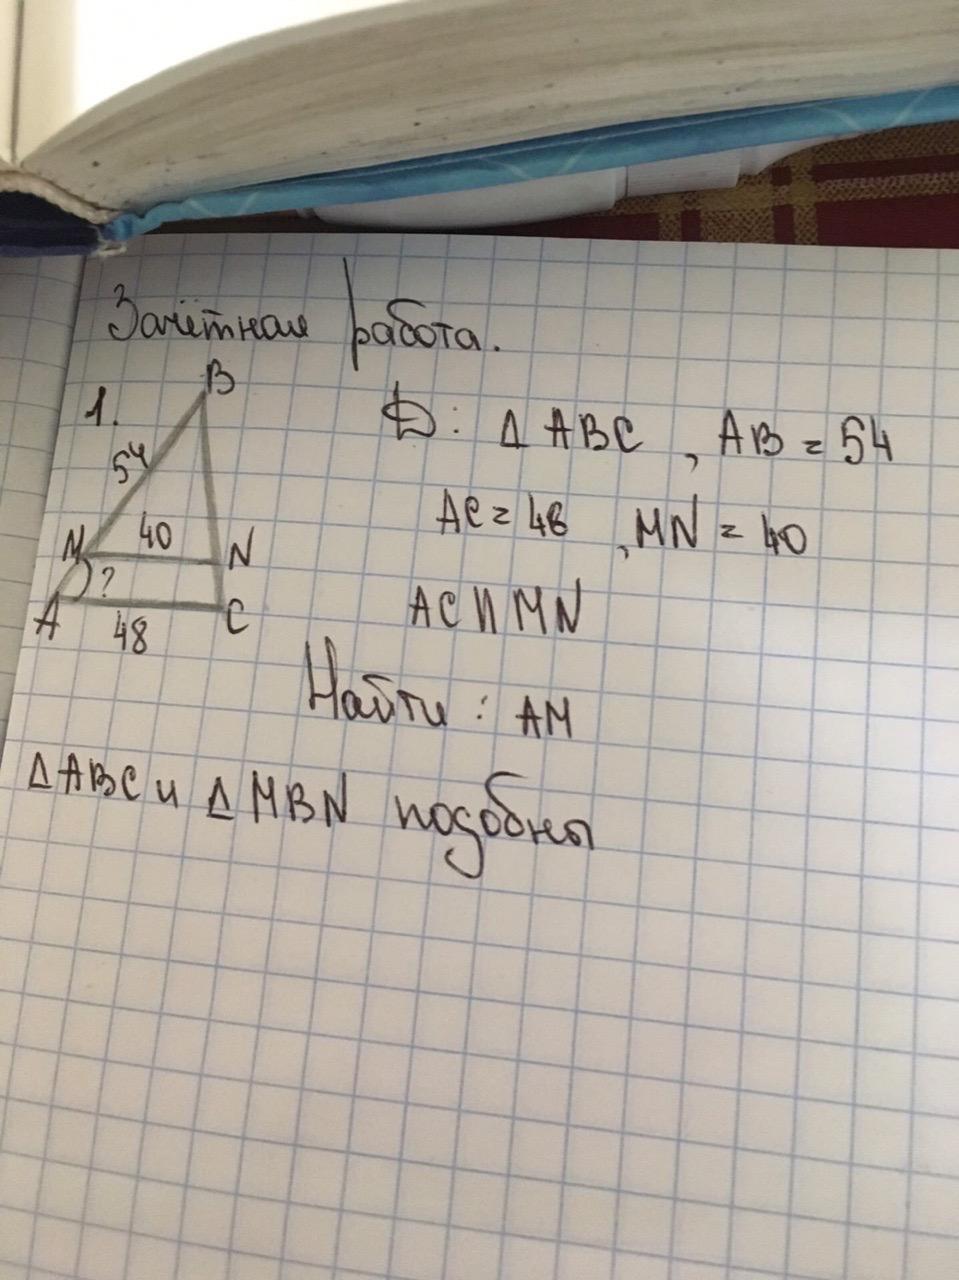 Зачётная работа.
1.
B
54
M
40
N
?
A
48
C
D: Δ ABC , AB = 54
AC = 48 , MN = 40
AC || MN
Найти : AM
Δ ABC и Δ MBN подобны